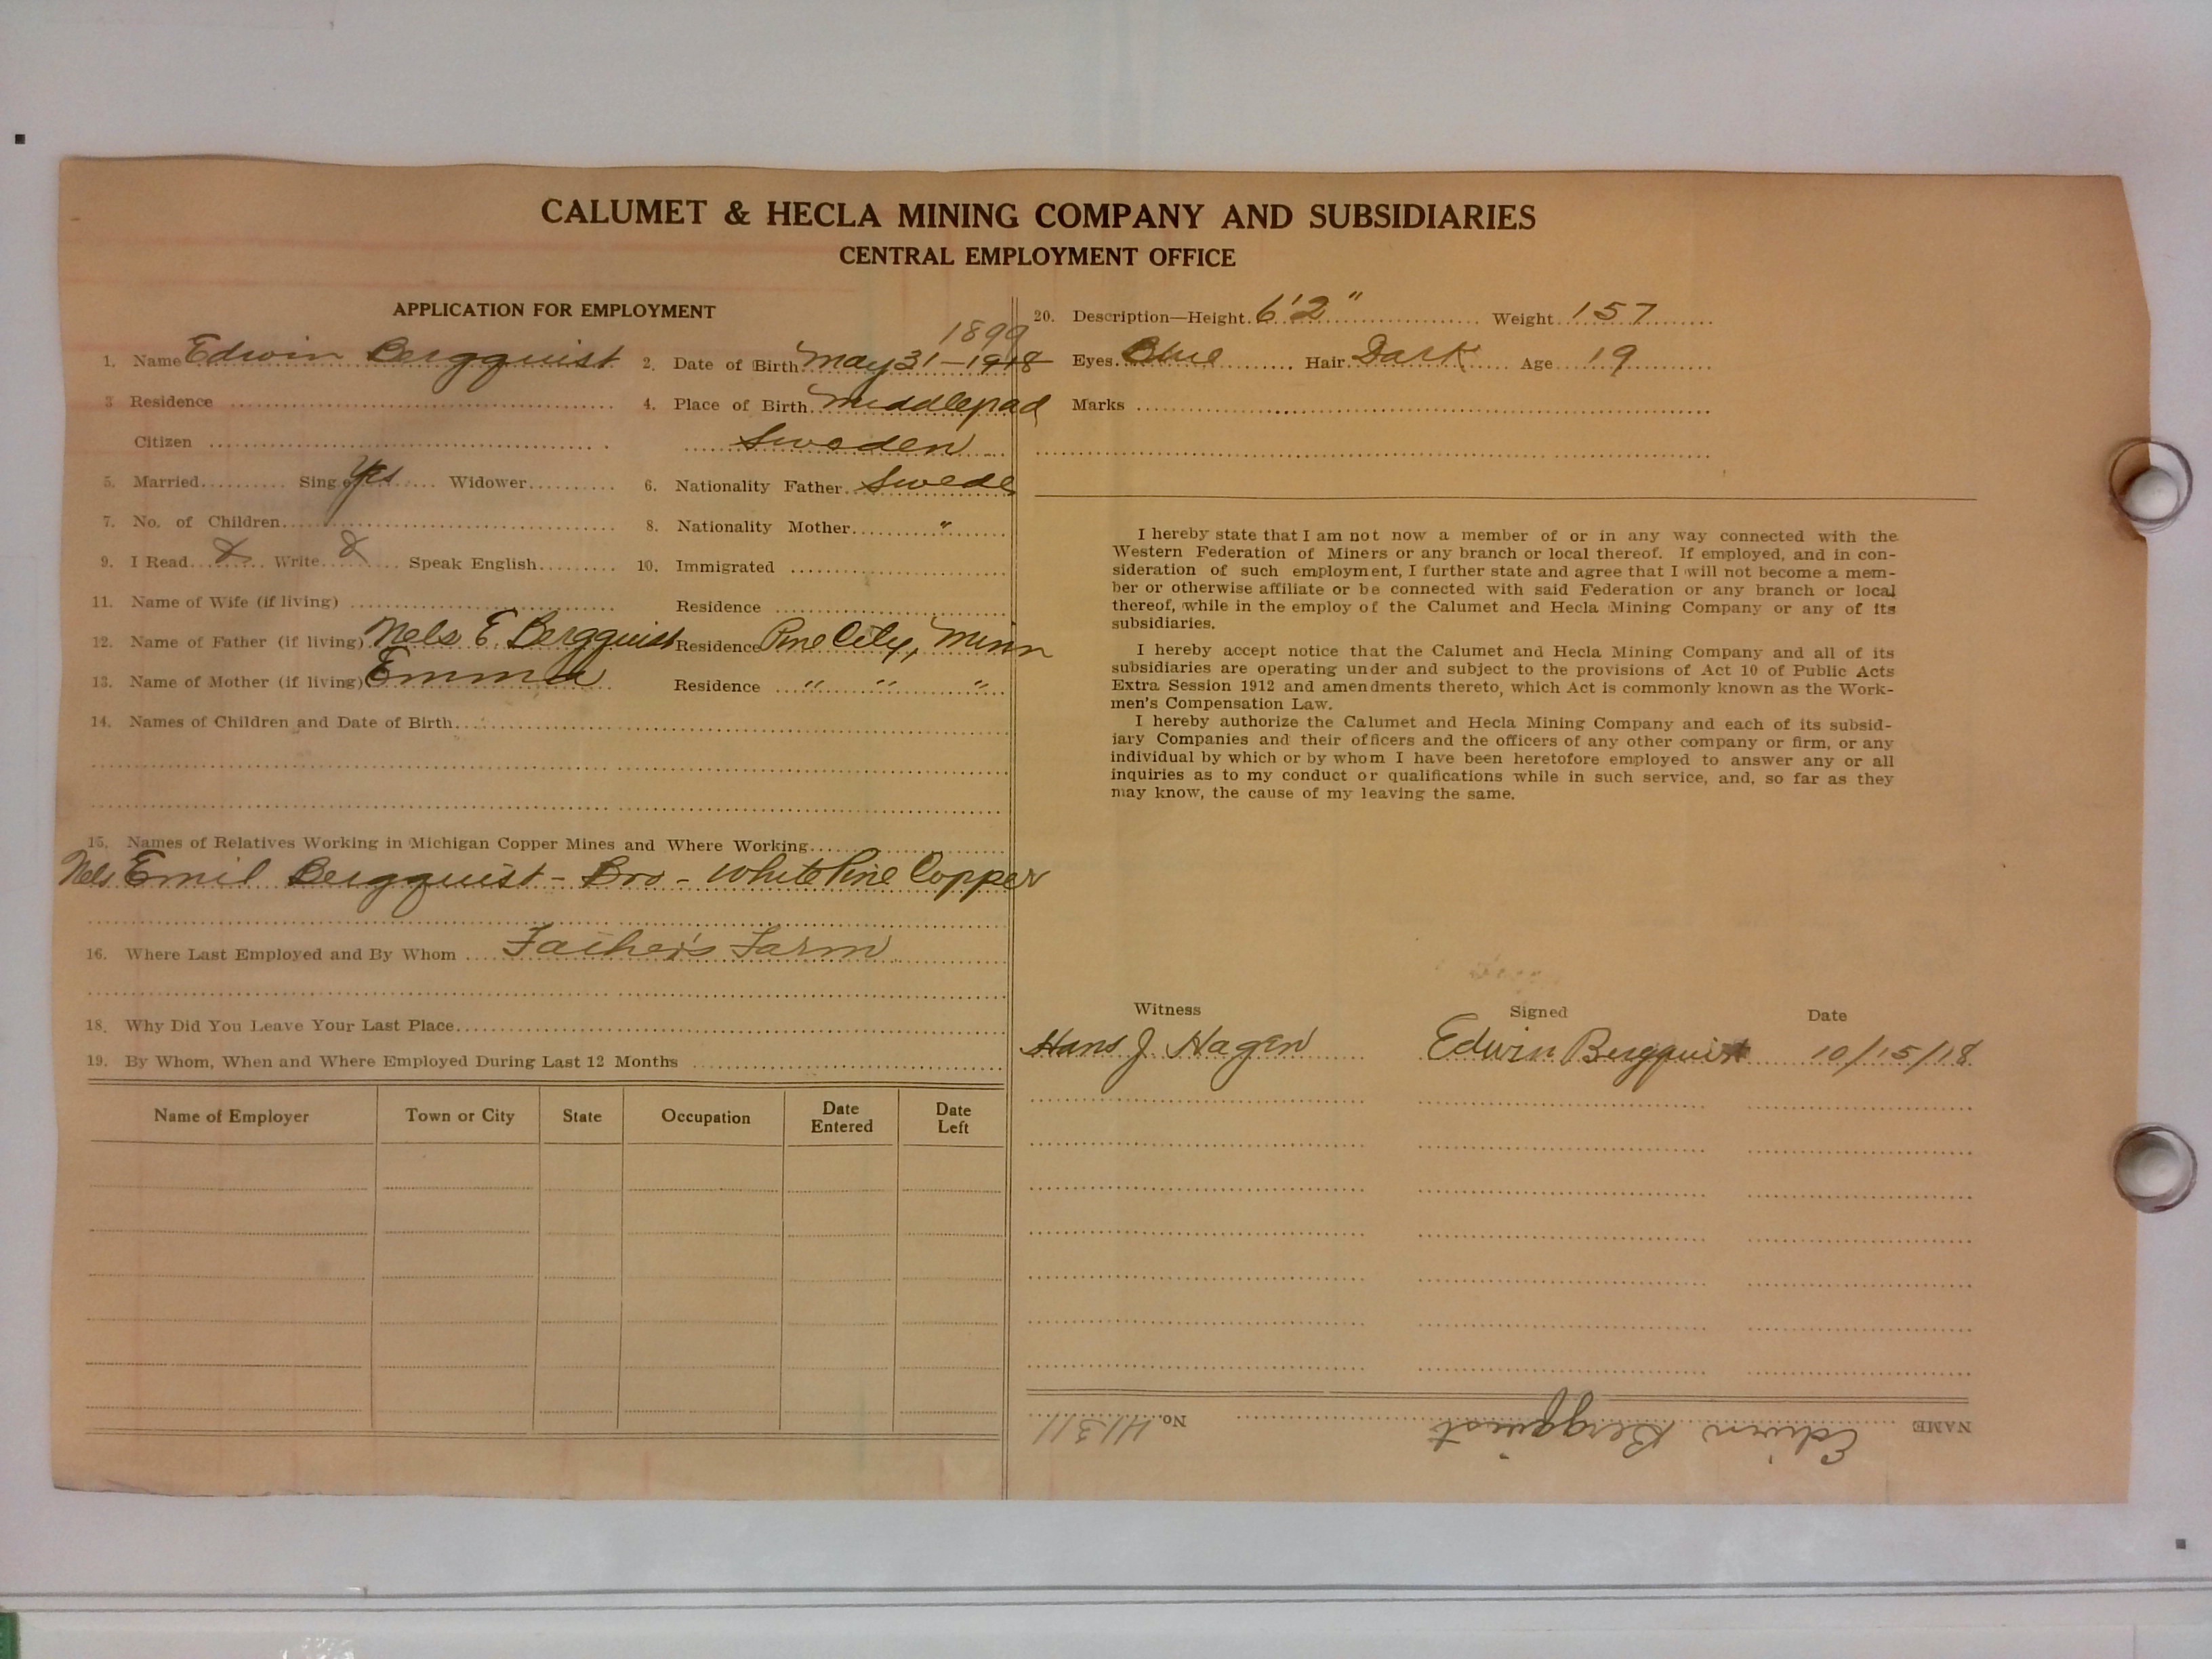 CALUMET & HECLA MINING COMPANY AND SUBSIDIARIES
CENTRAL EMPLOYMENT OFFICE
APPLICATION FOR EMPLOYMENT
1899
1. Name Edwin Bergquist 2. Date of Birth May 31-1918
3 Residence 4. Place of Birth Middlepad
Citizen Sweden
5. Married Single Yes Widower 6. Nationality Father Swede
7. No. of Children 8. Nationality Mother "
9. I Read X Write X Speak English 10. Immigrated
11. Name of Wife (if living) Residence
12. Name of Father (if living) Nels E. Bergquist Residence Pine City, Minn
13. Name of Mother (if living) Emma Residence " " "
14. Names of Children and Date of Birth
15. Names of Relatives Working in Michigan Copper Mines and Where Working
Nels Emil Bergquist - Bro - White Pine Copper
16. Where Last Employed and By Whom Father's Farm
18. Why Did You Leave Your Last Place
19. By Whom, When and Where Employed During Last 12 Months
Name of Employer Town or City State Occupation Date Entered Date Left
20. Description—Height 6'2" Weight 157
Eyes Blue Hair Dark Age 19
Marks
I hereby state that I am not now a member of or in any way connected with the
Western Federation of Miners or any branch or local thereof. If employed, and in con-
sideration of such employment, I further state and agree that I will not become a mem-
ber or otherwise affiliate or be connected with said Federation or any branch or local
thereof, while in the employ of the Calumet and Hecla Mining Company or any of its
subsidiaries.
I hereby accept notice that the Calumet and Hecla Mining Company and all of its
subsidiaries are operating under and subject to the provisions of Act 10 of Public Acts
Extra Session 1912 and amendments thereto, which Act is commonly known as the Work-
men's Compensation Law.
I hereby authorize the Calumet and Hecla Mining Company and each of its subsid-
iary Companies and their officers and the officers of any other company or firm, or any
individual by which or by whom I have been heretofore employed to answer any or all
inquiries as to my conduct or qualifications while in such service, and, so far as they
may know, the cause of my leaving the same.
Witness Signed Date
Hans J. Hagen Edwin Bergquist 10/15/18
NAME Edwin Bergquist No. 41311